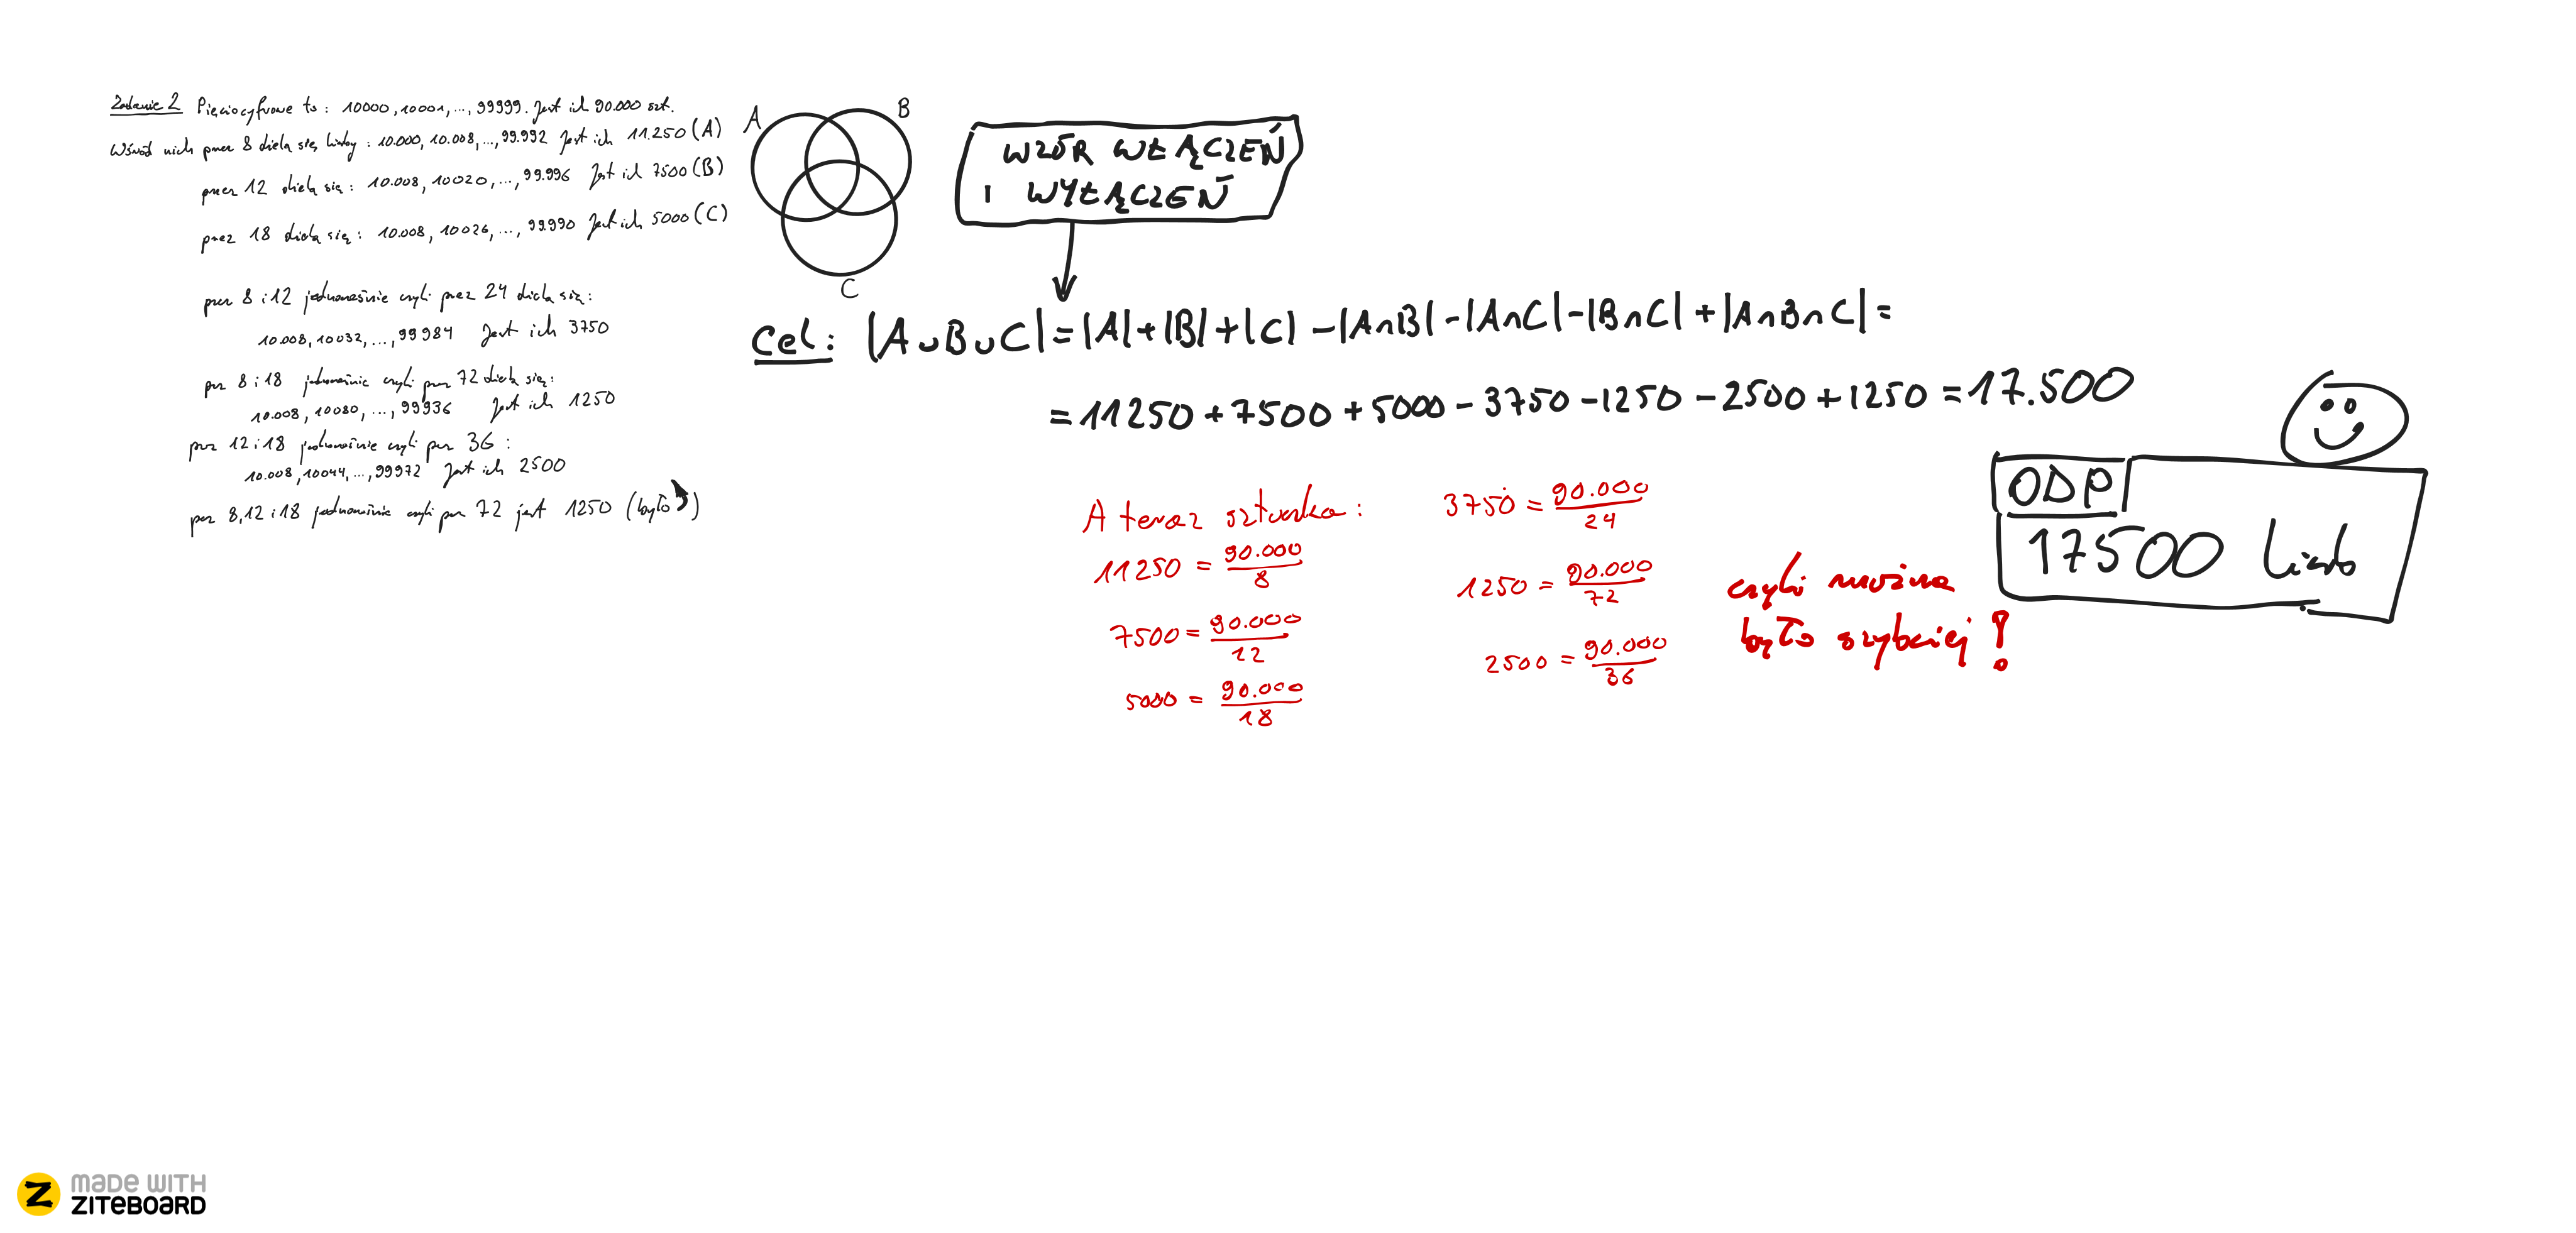 Zadanie 2 Pięciocyfrowe to : 10000, 10001, ..., 99999. Jest ich 90.000 szt.
Wśród nich przez 8 dzielą się liczby : 10.000, 10.008, ..., 99.992 Jest ich 11.250 (A)
przez 12 dzielą się : 10.008, 10020, ..., 99.996 Jest ich 7500 (B)
przez 18 dzielą się : 10.008, 10026, ..., 99.990 Jest ich 5000 (C)
przez 8 i 12 jednocześnie czyli przez 24 dzielą się :
10.008, 10032, ..., 99984 Jest ich 3750
prz 8 i 18 jednocześnie czyli prz 72 dzielą się :
10.008, 10080, ..., 99936 Jest ich 1250
prz 12 i 18 jednocześnie czyli prz 36 :
10.008, 10044, ..., 99972 Jest ich 2500
prz 8, 12 i 18 jednocześnie czyli prz 72 jest 1250 (było)
A
B
C
WZÓR WŁĄCZEŃ
I WYŁĄCZEŃ
Cel : |A∪B∪C| = |A| + |B| + |C| - |A∩B| - |A∩C| - |B∩C| + |A∩B∩C| =
= 11250 + 7500 + 5000 - 3750 - 1250 - 2500 + 1250 = 17.500
ODP
17500 liczb
A teraz sztuczka :
11250 = 90.000 / 8
7500 = 90.000 / 12
5000 = 90.000 / 18
3750 = 90.000 / 24
1250 = 90.000 / 72
2500 = 90.000 / 36
czyli można
było szybciej !
MADE WITH
ZITEBOARD